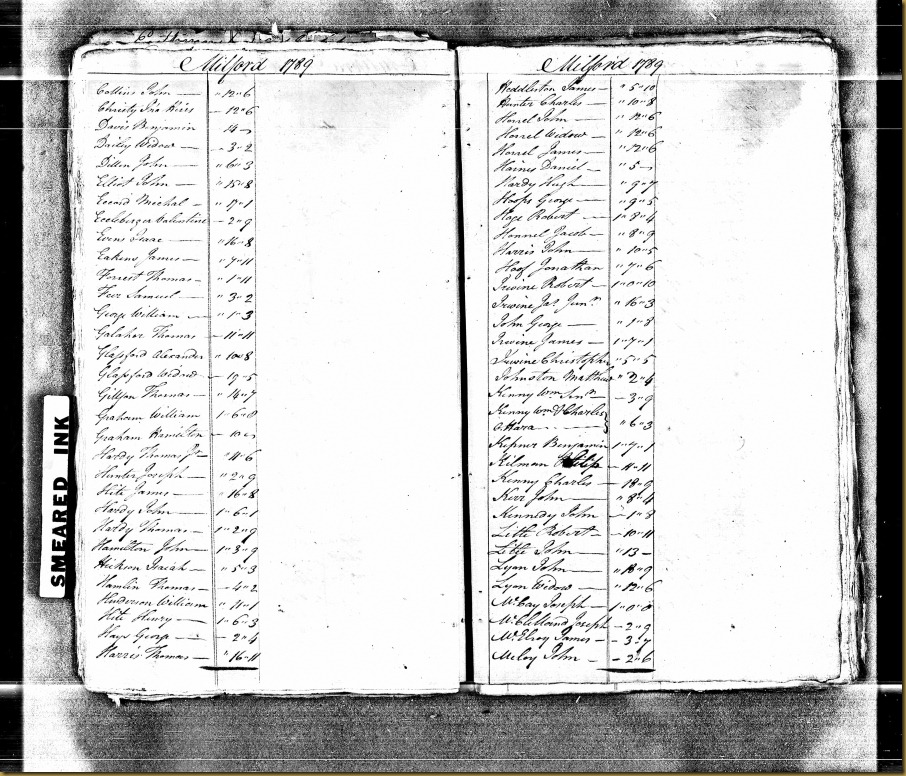 Milford 1789
Collins John — " 12 " 6
Christy — 12 " 6
Davis Benjamin 14 —
Dailey Widow — " 3 " 2
Dillen John — " 6 " 3
Elliot John — " 15 " 8
Eccard Michal — " 17 " 1
Eccleberger Valentine — 2 " 9
Evens Isaac — " 16 " 8
Eakens James — " 7 " 11
Forrest Thomas — " 1 " 11
Feer Samuel — " 3 " 2
George William — " 1 " 3
Galaher Thomas — 11 " 11
Glassford Alexander " 10 " 8
Glassford Widow — 19 " 5
Gillson Thomas — " 14 " 7
Graham William 1 " 6 " 8
Graham Hamilton — 10 " —
Hardy Thomas " 4 " 6
Hunter Joseph — " 2 " 9
Hite James — " 16 " 8
Hardy John — 1 " 6 " 1
Hardy Thomas — 1 " 2 " 9
Hamilton John — 1 " 3 " 9
Hickson Isaiah — " 5 " 3
Hamlin Thomas — 4 " 2
Henderson William " 11 " 1
Hite Henry — 1 " 6 " 3
Hays George — 2 " 4
Harris Thomas — " 16 " 11
Milford 1789
Heddleston James — " 5 " 10
Hunter Charles — " 10 " 8
Horrel John — " 12 " 6
Horrel Widow — " 12 " 6
Horrel James — " 12 " 6
Haines Daniel — " 5 —
Hardy Hugh — " 9 " 7
Hoops George — " 9 " 5
Hope Robert — 1 " 8 " 4
Hommel Jacob — " 8 " 9
Harris John — " 10 " 5
Hoof Jonathan " 7 " 6
Irwine Robert — 1 " 0 " 10
Irwine Jas. Junr. " 16 " 3
John George — " 1 " 8
Irwine James — 1 " 7 " 1
Irwine Christopher " 5 " 5
Johnston Mathew " 2 " 4
Kenny Wm Senr — 3 " 9
Kenny Wm & Charles }
O.Hara " 6 " 3
Kepner Benjamin 1 " 7 " 1
Kilman Philip — 11 " 11
Kenny Charles — 18 " 9
Kerr John — " 8 " 4
Kennedy John — 1 " 8
Little Robert — 10 " 11
Little John — " 13 —
Lyon John — " 18 " 9
Lyon Widow — " 12 " 6
McCay Joseph — 1 " 0 " 8
McClelland Joseph — 2 " 9
McElroy James — 3 " 7
Meloy John — 2 " 6
SMEARED INK